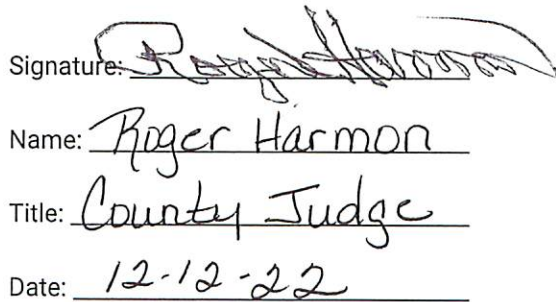 Signature: Roger Harmon
Name: Roger Harmon
Title: County Judge
Date: 12-12-22